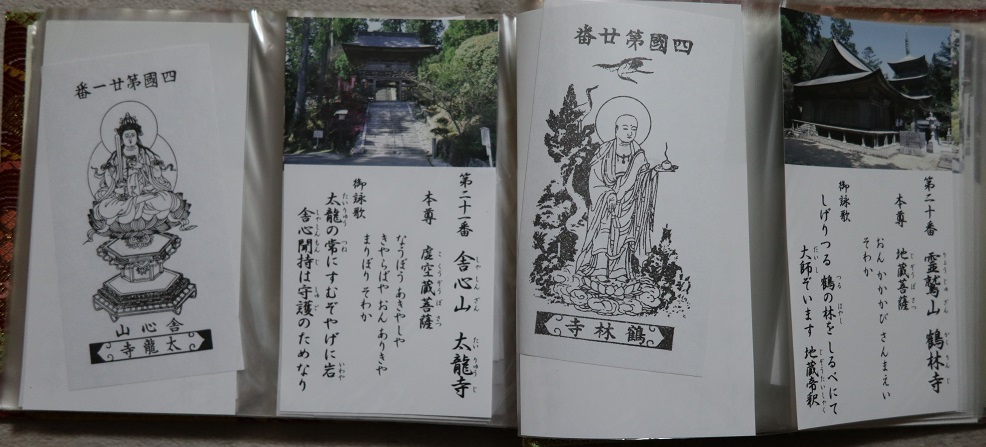 第二十番 霊鷲山 鶴林寺
本尊 地蔵菩薩
おん かかかび さんまえい
そわか
御詠歌
しげりつる 鶴の林をしるべにて
大師ぞいます 地蔵帝釈
四國第廿番
鶴林寺
第二十一番 舎心山 太龍寺
本尊 虚空蔵菩薩
なうぼう あきやしゃ
きやらばや おん ありきや
まりぼり そわか
御詠歌
太龍の常にすむぞやげに岩
舎心聞持は守護のためなり
四國第廿一番
舎心山
太龍寺